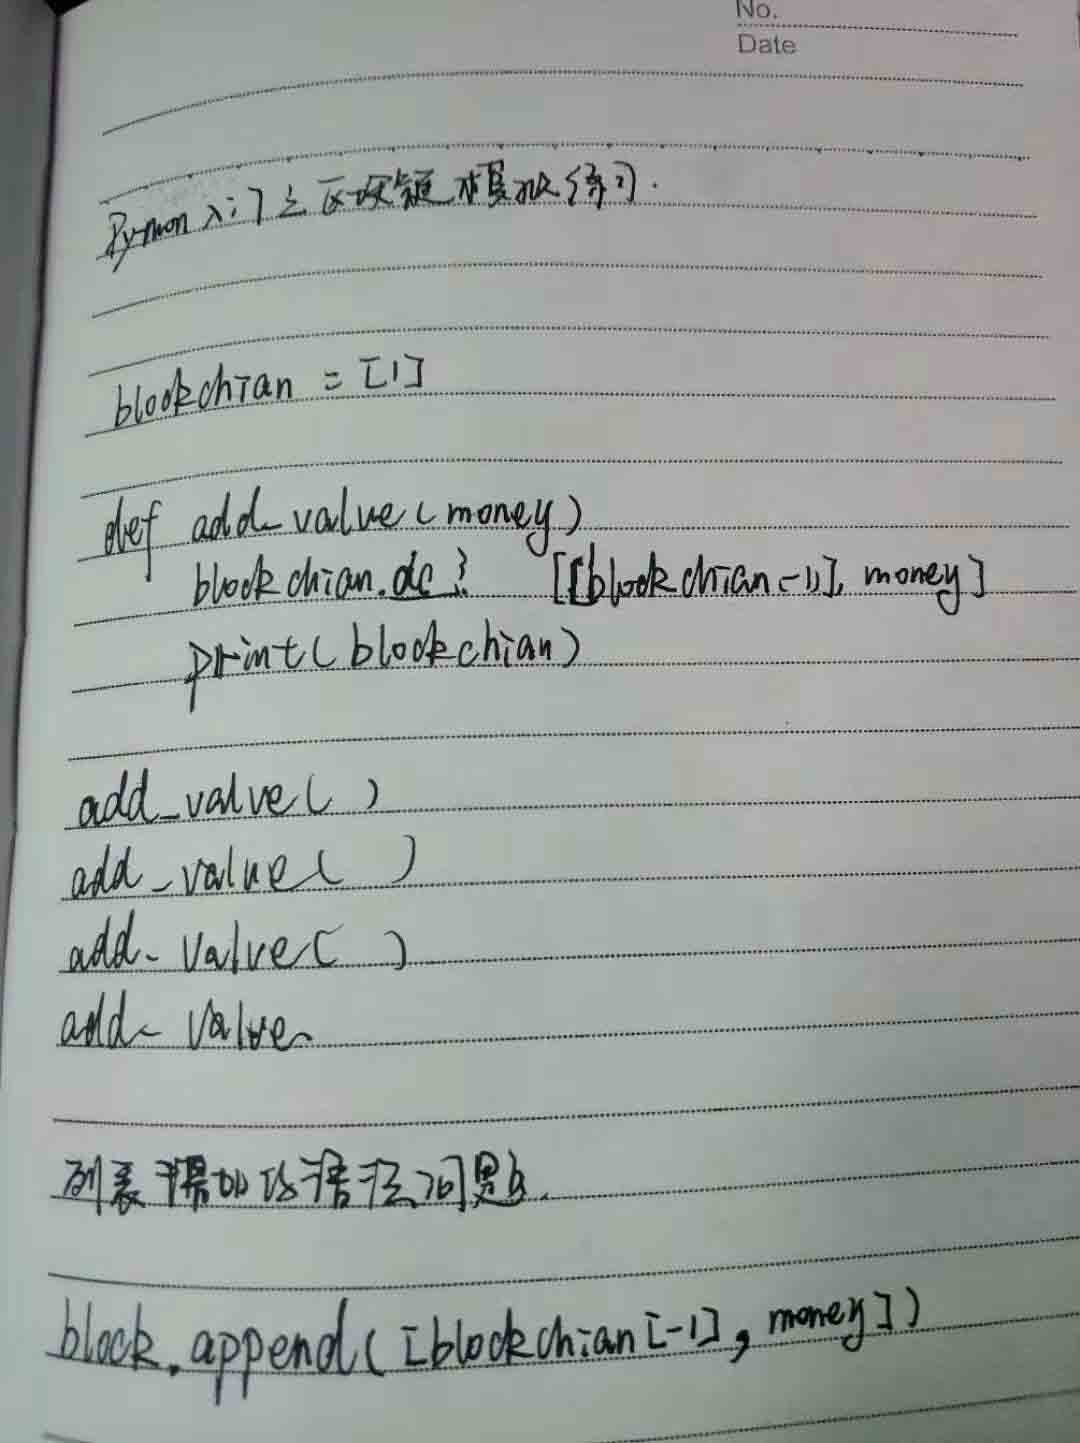 No.
Date
Python 入门之区块链模拟练习.
blookchian = [1]
def add_value(money)
blookchian.dc? [[blookchian(-1)], money]
print(blookchian)
add_value( )
add_value( )
add_value( )
add_value
列表添加的语法问题.
block.append([blookchian[-1], money])